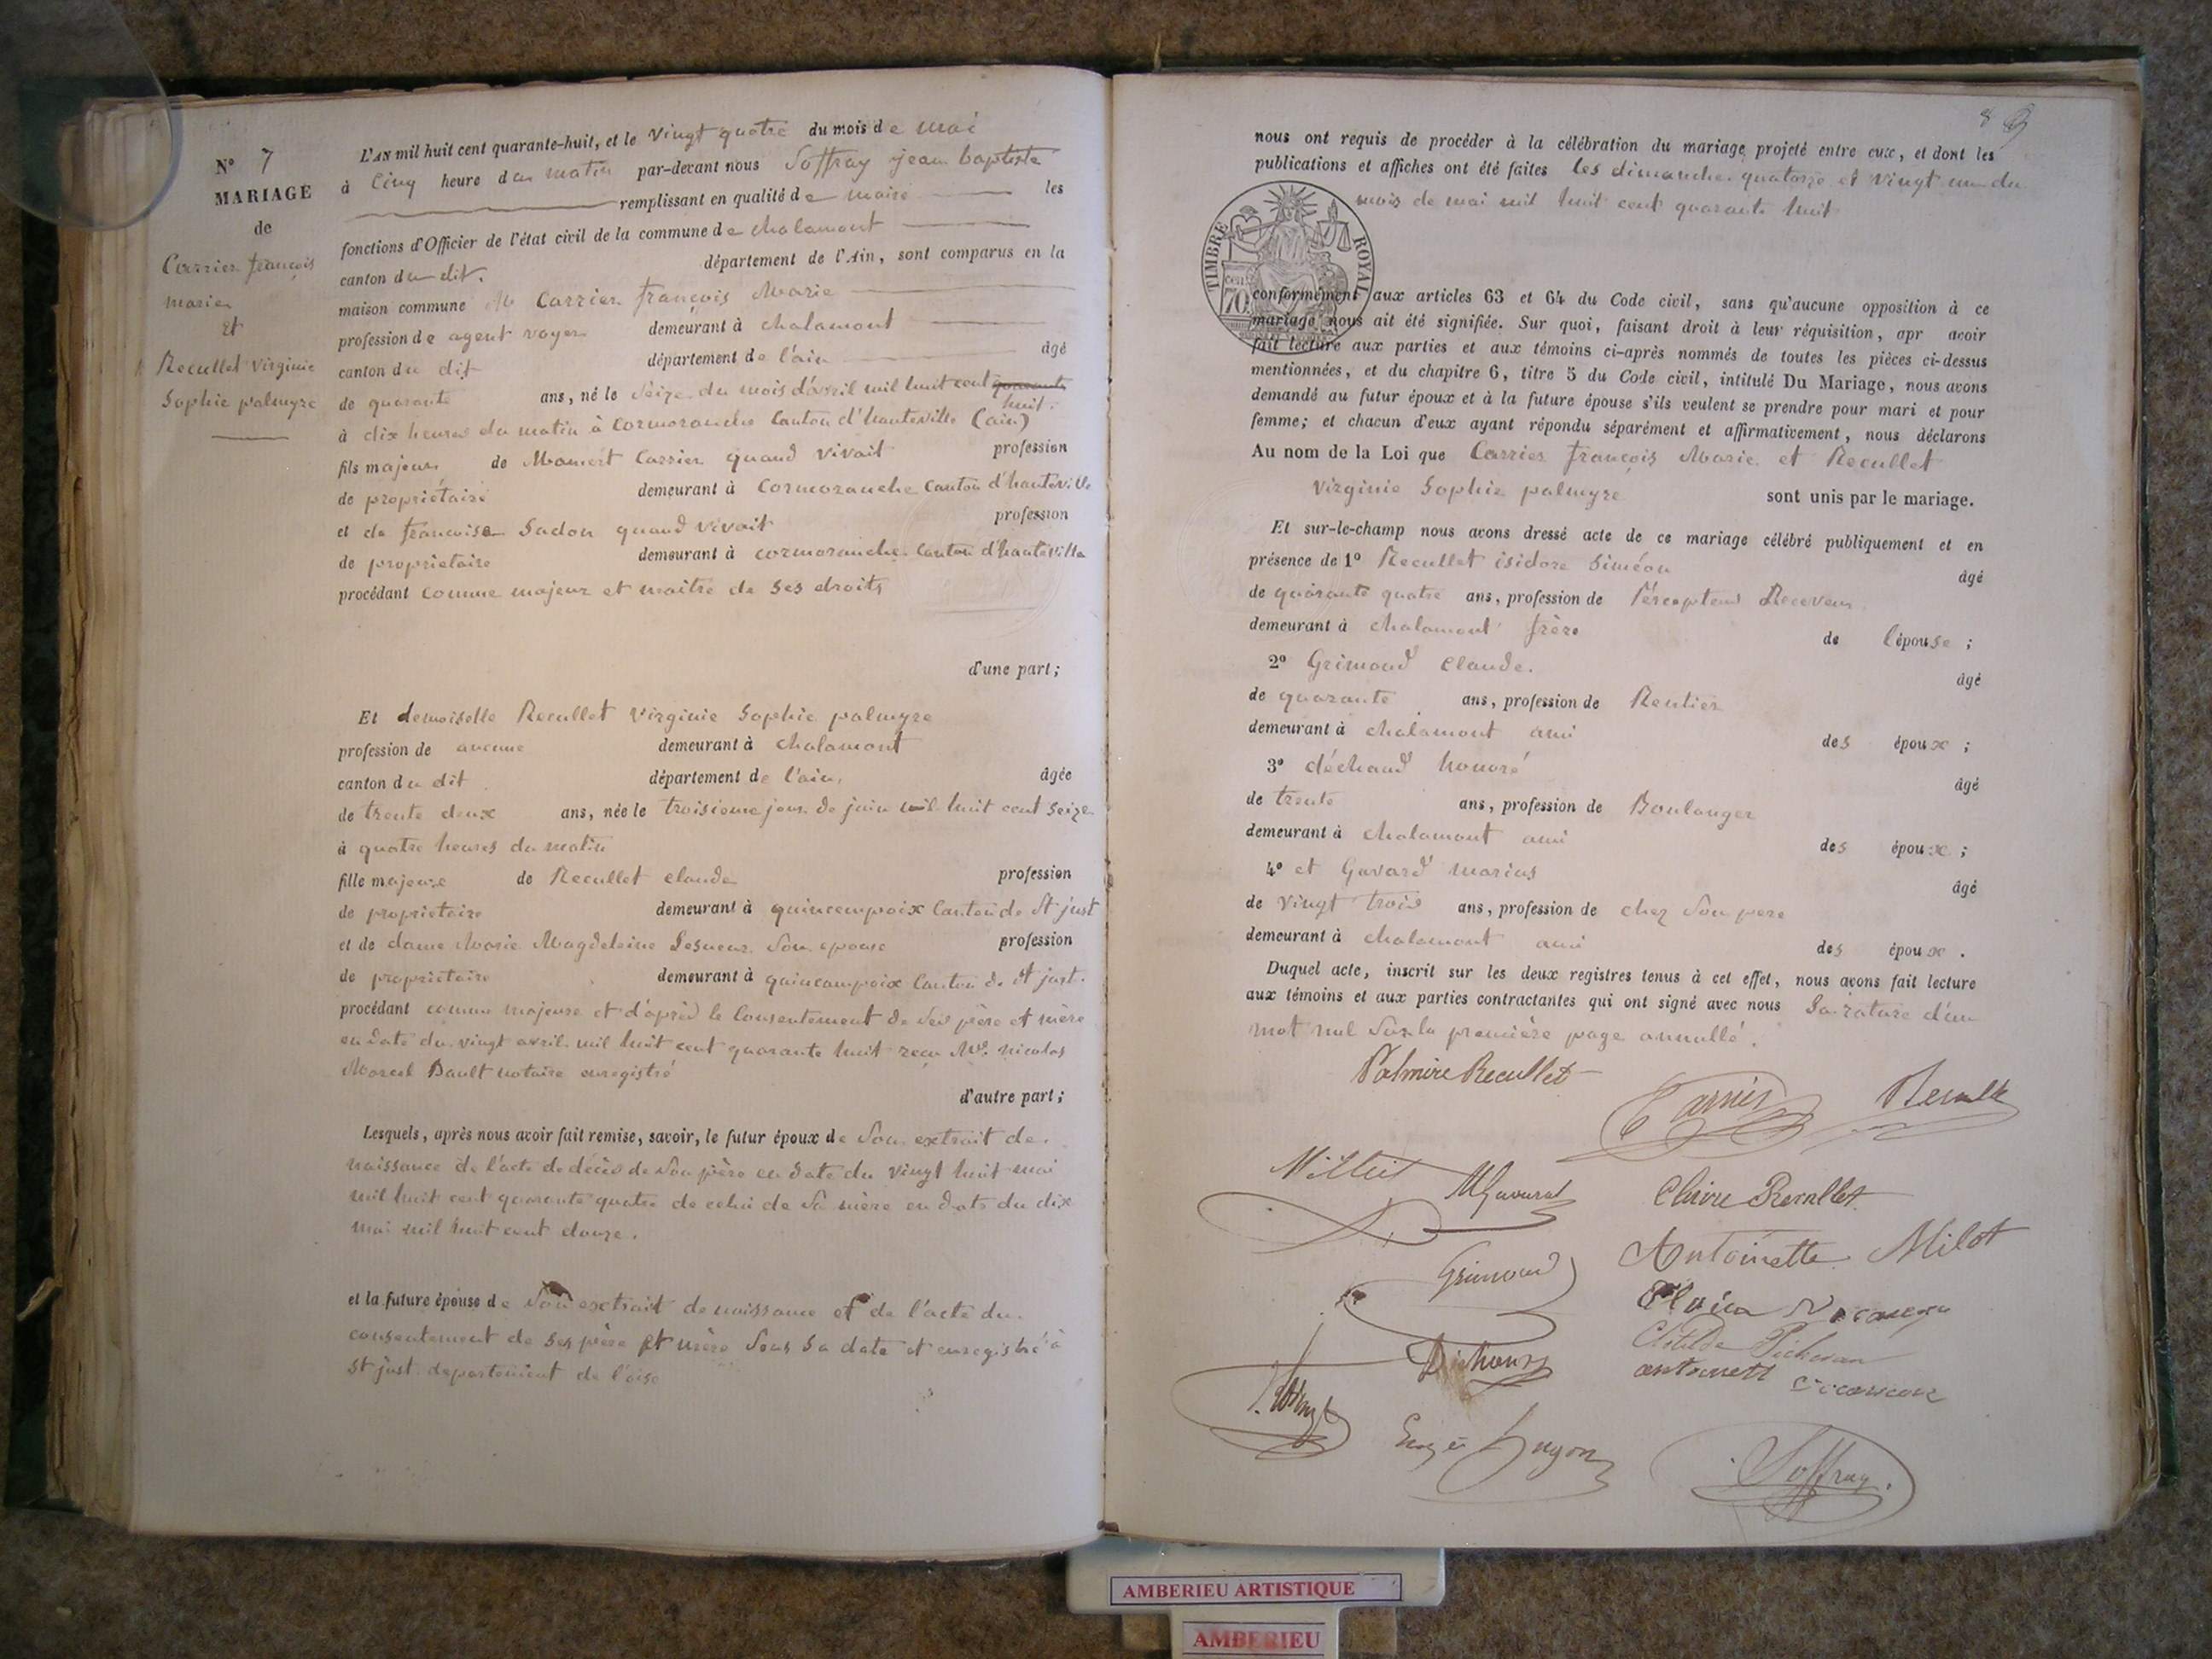 N° 7
MARIAGE
de
Carrier françois
marie
Et
Recullet Virginie
Sophie palmyre
L'AN mil huit cent quarante-huit, et le vingt quatre du mois de mai
à cinq heure du matin par-devant nous Soffray jean baptiste
remplissant en qualité de maire les
fonctions d'Officier de l'état civil de la commune de chalamont
canton du dit. département de l'Ain, sont comparus en la
maison commune Mr Carrier françois Marie
profession de agent voyer demeurant à chalamont
canton du dit département de l'ain âgé
de quarante ans, né le seize du mois d'avril mil huit cent quarante
huit.
à dix heures du matin à Cormoranche Canton d'hauteville (ain)
fils majeur de Mamert Carrier quand vivait profession
de propriétaire demeurant à Cormoranche Canton d'hauteville
et de françoise Sadon quand vivait profession
de propriétaire demeurant à cormoranche Canton d'hauteville
procédant comme majeur et maître de ses droits
d'une part;
Et demoiselle Recullet Virginie Sophie palmyre
profession de aucune demeurant à chalamont
canton du dit département de l'ain, âgée
de trente deux ans, née le troisième jour de juin mil huit cent seize
à quatre heures du matin
fille majeure de Recullet claude profession
de propriétaire demeurant à quincampoix Canton de St just
et de dame Marie Magdeleine Lesueur son epouse profession
de propriétaire demeurant à quincampoix Canton de St just.
procédant comme majeure et d'après le Consentement de ses père et mère
en date du vingt avril mil huit cent quarante huit reçu Me. nicolas
Marcel Dault notaire enregistré
d'autre part;
Lesquels, après nous avoir fait remise, savoir, le futur époux de son extrait de
naissance de l'acte de décès de son père en date du vingt huit mai
mil huit cent quarante quatre de celui de sa mère en date du dix
mai mil huit cent douze.
et la future épouse de son extrait de naissance et de l'acte du
consentement de ses père et mère sous sa date et enregistré à
St just departement de l'oise
8
nous ont requis de procéder à la célébration du mariage projeté entre eux, et dont les
publications et affiches ont été faites les dimanche quatorze et vingt un du
mois de mai mil huit cent quarante huit
TIMBRE ROYAL
70
conformément aux articles 63 et 64 du Code civil, sans qu'aucune opposition à ce
mariage nous ait été signifiée. Sur quoi, faisant droit à leur réquisition, apr avoir
fait lecture aux parties et aux témoins ci-après nommés de toutes les pièces ci-dessus
mentionnées, et du chapitre 6, titre 5 du Code civil, intitulé Du Mariage, nous avons
demandé au futur époux et à la future épouse s'ils veulent se prendre pour mari et pour
femme; et chacun d'eux ayant répondu séparément et affirmativement, nous déclarons
Au nom de la Loi que Carrier françois Marie et Recullet
Virginie Sophie palmyre sont unis par le mariage.
Et sur-le-champ nous avons dressé acte de ce mariage célébré publiquement et en
présence de 1° Recullet isidore Siméon âgé
de quarante quatre ans, profession de Percepteur Receveur
demeurant à chalamont frère de l'épouse;
2° Grimaud claude. âgé
de quarante ans, profession de Rentier
demeurant à chalamont ami des époux;
3° déchaud honoré âgé
de trente ans, profession de Boulanger
demeurant à chalamont ami des époux;
4° et Guvard marius âgé
de vingt trois ans, profession de chez son pere
demeurant à chalamont ami des époux.
Duquel acte, inscrit sur les deux registres tenus à cet effet, nous avons fait lecture
aux témoins et aux parties contractantes qui ont signé avec nous la rature d'un
mot nul sur la première page annullé.
Palmire Recullet
Carrier Recullet
Recullet
Antoinette Milot
Grimaud
Clotilde
Soffray
AMBERIEU ARTISTIQUE
AMBERIEU